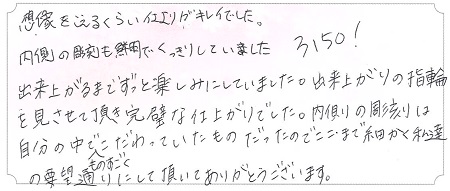 想像をこえるくらい仕上りがキレイでした。
内側の彫刻も鮮明でくっきりしていました 3150!
出来上がるまでずっと楽しみにしていました。出来上がりの指輪
を見させて頂き完璧な仕上がりでした。内側りの彫刻りは
自分の中でこだわっていたものだったのでここまで細かく私達
の要望通りにして頂いてありがとうございます。
ものすごく